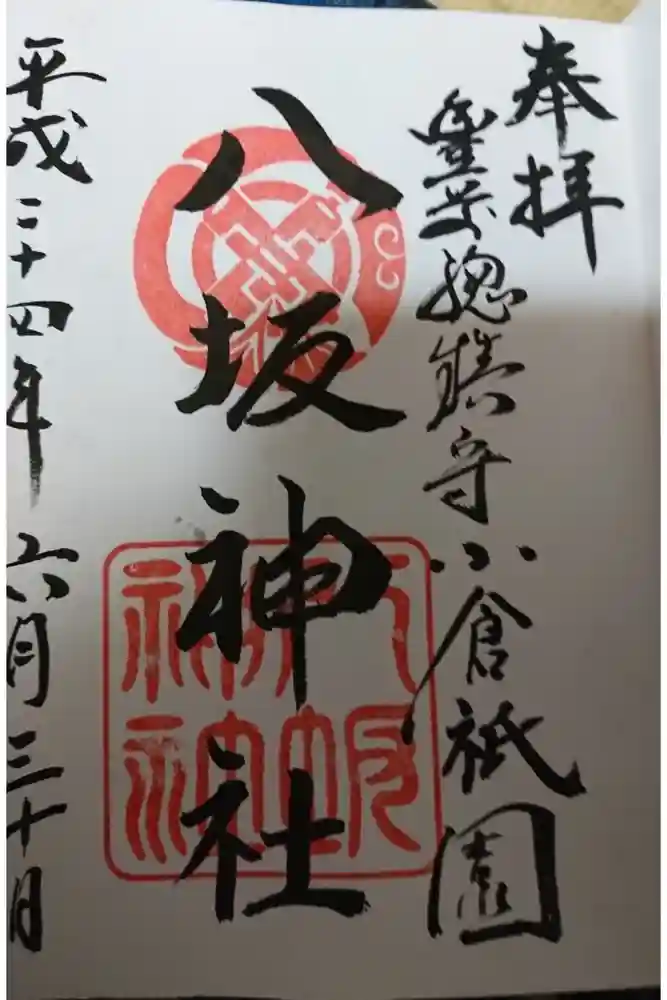 奉拝
豊前総鎮守小倉祇園
八坂神社
平成二十四年六月三十日
八坂神社